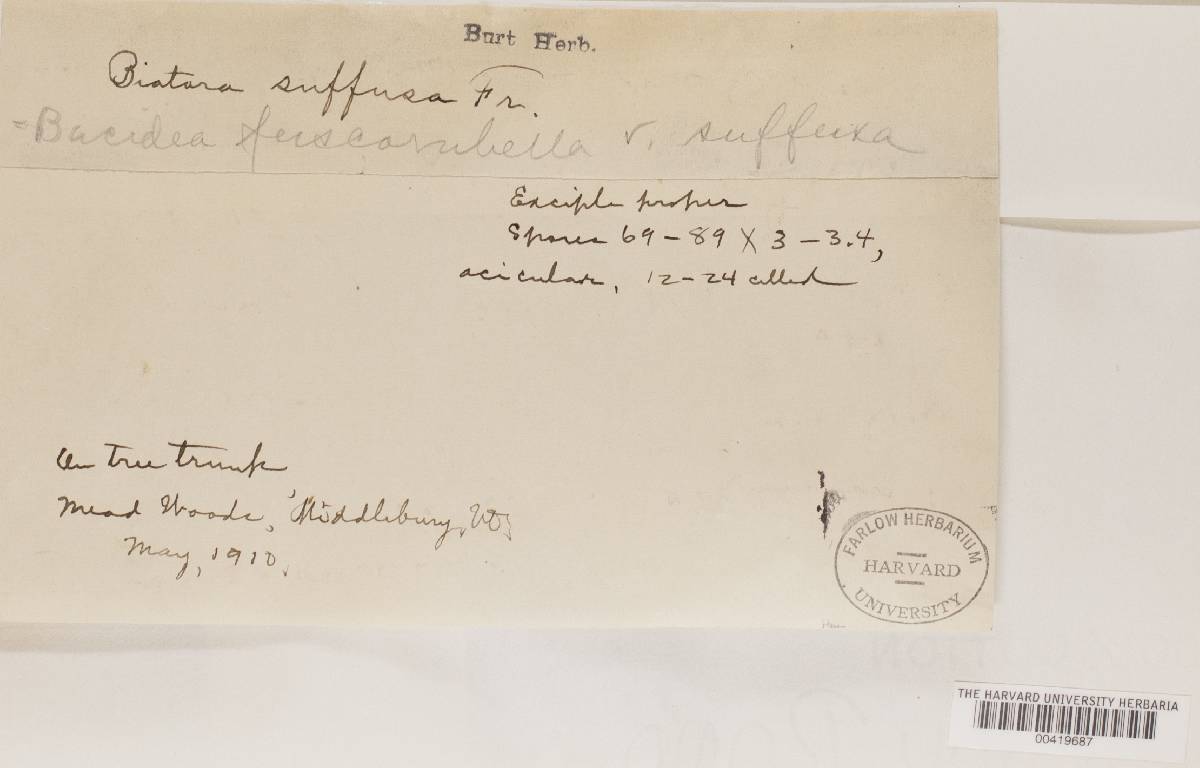 Burt Herb.
Biatora suffusa Fr.
=Bacidea fuscorubella v. suffusa
Exciple proper
Spores 69-89 X 3-3.4,
acicular, 12-24 celled
On tree trunk,
Mead Woods, Middlebury, Vt,
May, 1910.
FARLOW HERBARIUM
HARVARD
UNIVERSITY
THE HARVARD UNIVERSITY HERBARIA
00419687